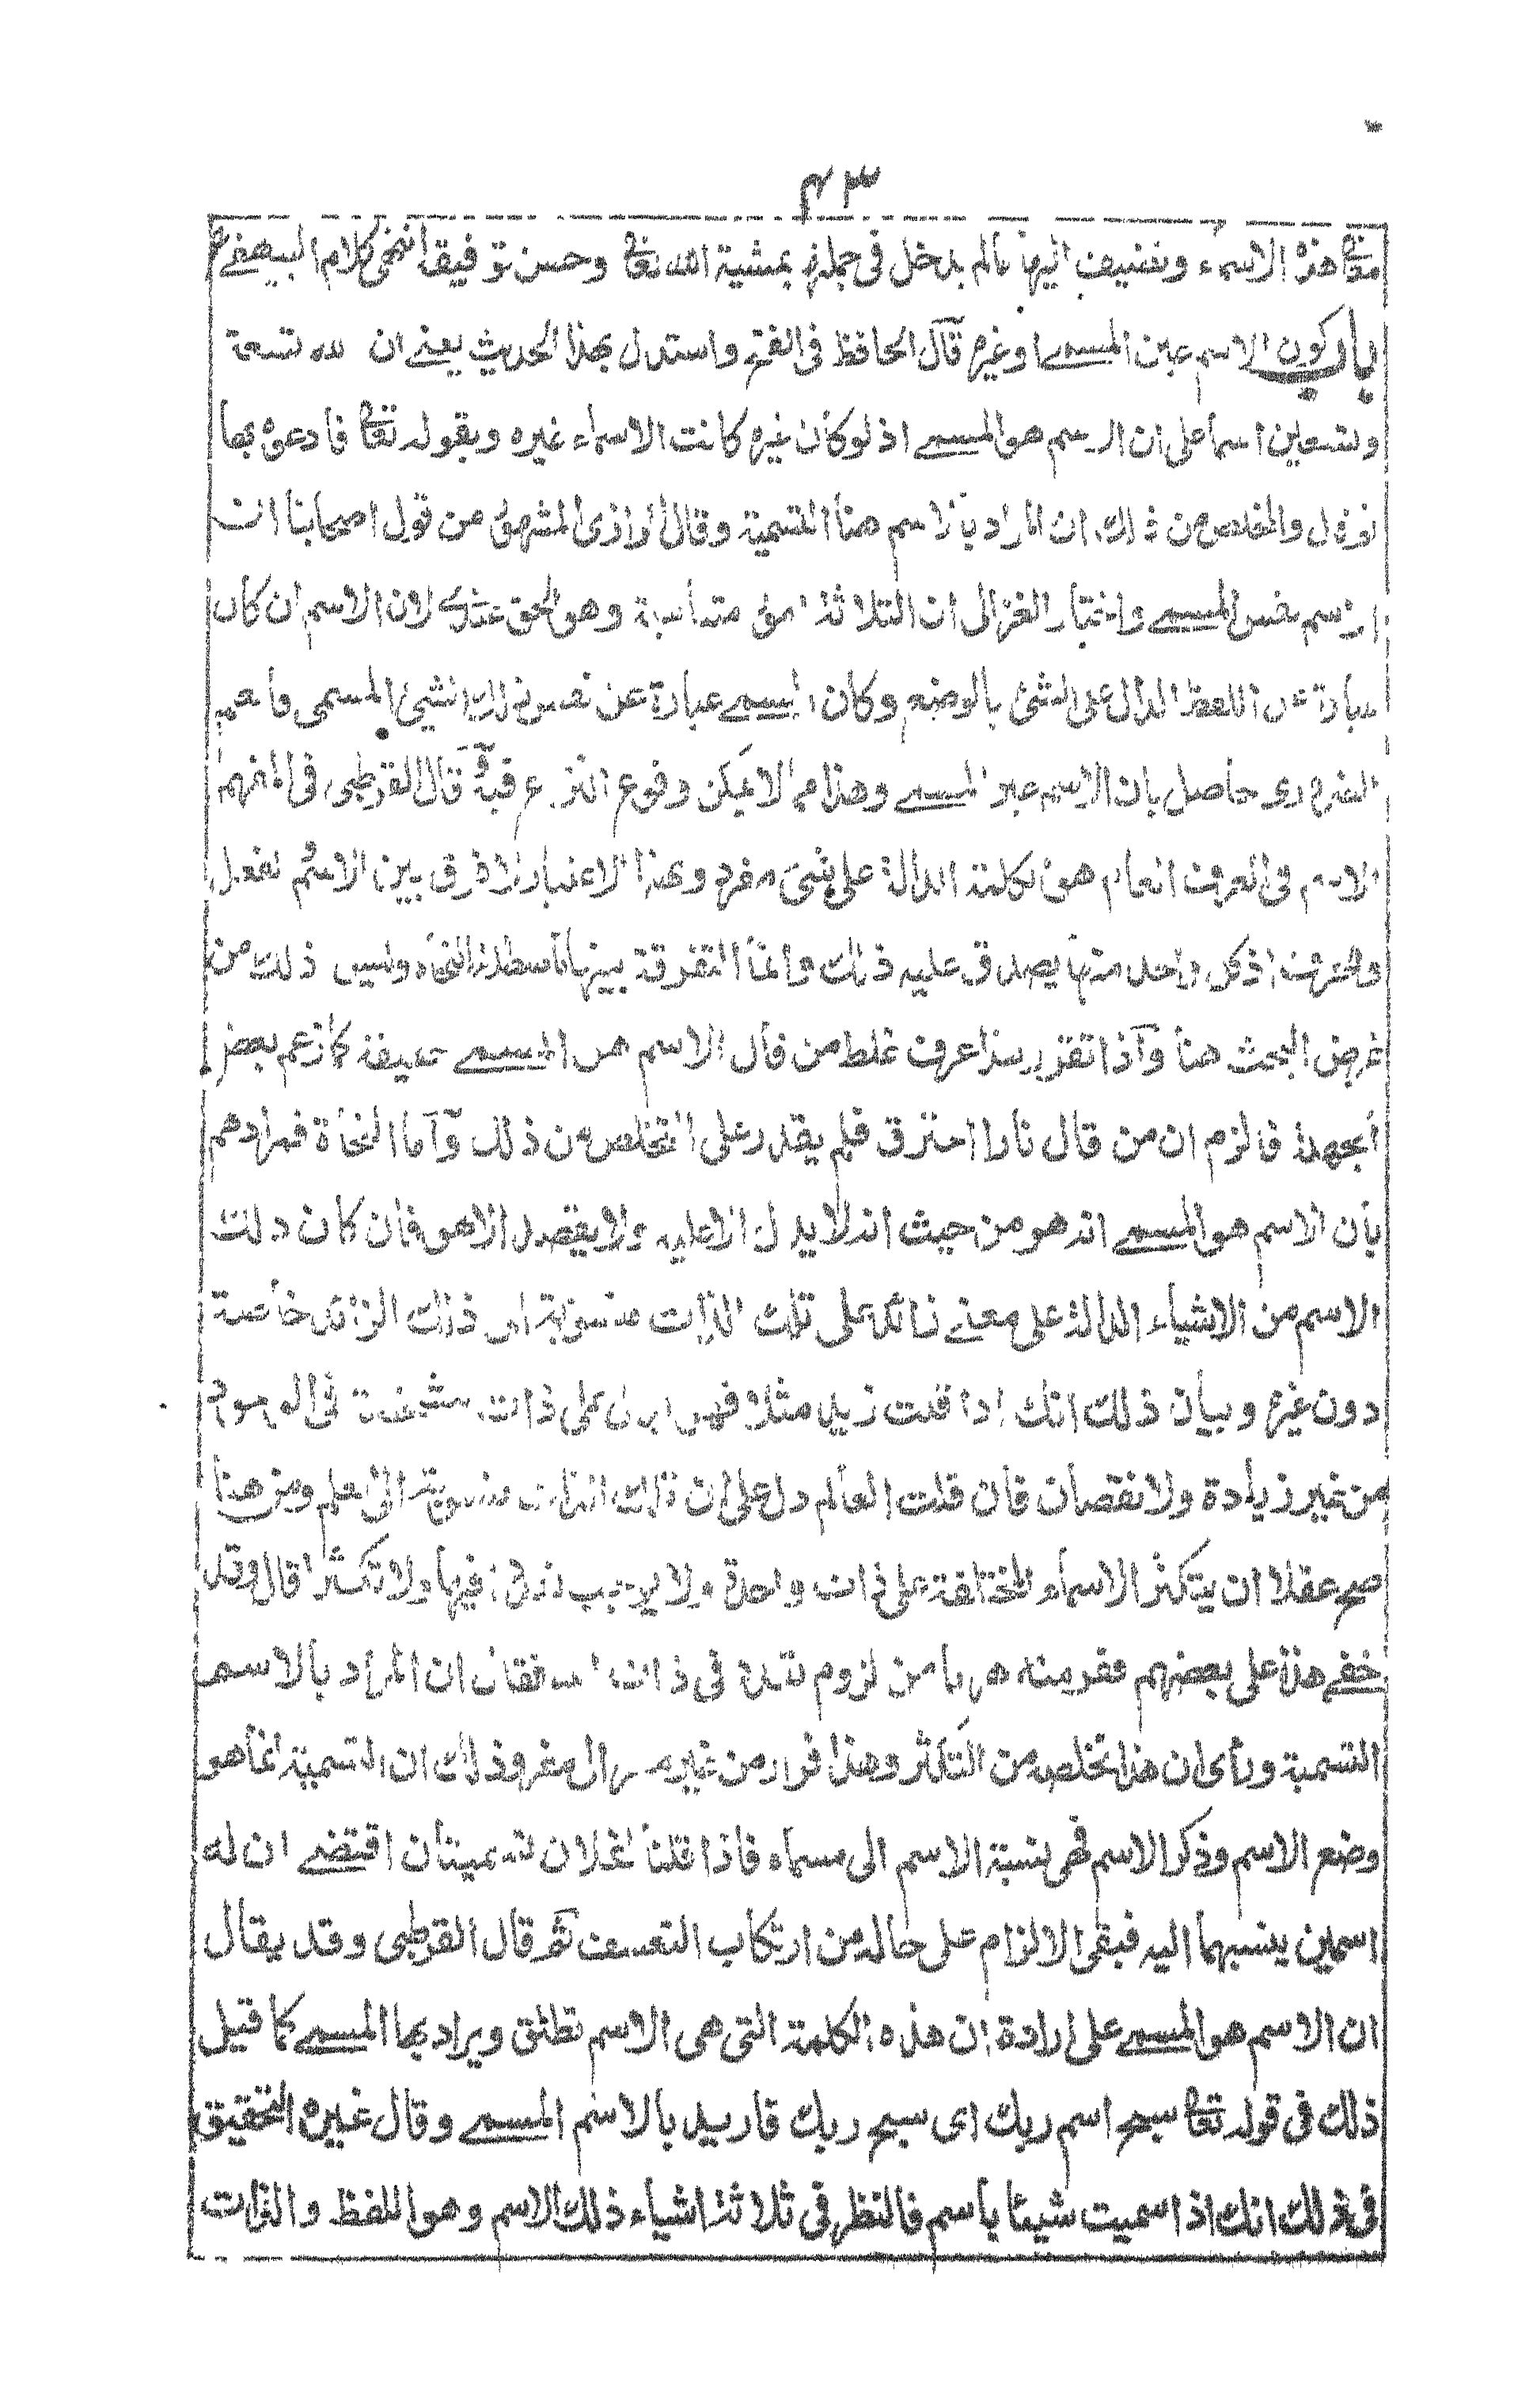 ۴۳
معانى هذه الاسماء ونضيف اليها مالم يدخل فى جملتها بمشية الله تعالى وحسن توفيقه انتهى كلام البيهقى
باب كون الاسم عين المسمى او غيره قال الحافظ فى الفتح واستدل بهذا الحديث يعنى ان لله تسعة
وتسعين اسما على ان الاسم هو المسمى اذ لو كان غيره كانت الاسماء غيره وبقوله تعالى فادعوه بها
قال والمخلص من ذلك ان المراد بالاسم هنا التسمية وقال الرازى المشهور من قول اصحابنا ان
الاسم نفس المسمى واختيار الغزالى ان الثلاثة امور متباينة وهو الحق عندى لان الاسم ان كان
عبارة عن اللفظ الدال على الشئ بالوضع وكان المسمى عبارة عن نفس ذلك الشئ المسمى فالعلم
الضرورى حاصل بان الاسم غير المسمى وهذا مما لا يمكن وقوع النزاع فيه وقال القرطبى فى المفهم
الاسم فى العرف العام هو الكلمة الدالة على شئ مفرد وبهذا الاعتبار لا فرق بين الاسم والفعل
والحرف اذ كل واحد منها يصدق عليه ذلك وانما التفرقة بينها باصطلاح النحاة وليس ذلك من
غرض البحث هنا واذا تقرر هذا عرف غلط من قال الاسم هو المسمى حقيقة كما زعم بعض
الجهلة فالزم ان من قال نارا احترق فلم يقدر على التخلص من ذلك واما النحاة فمرادهم
بان الاسم هو المسمى انه هو من حيث انه لا يدل الا عليه ولا يقصد الا هو فان كان ذلك
الاسم من الاشياء الدالة على معنى زائد على تلك الذات منسوبة الى ذلك الزائد خاصة
دون غيره وبيان ذلك انك اذا قلت زيد مثلا فهو يدل على ذات مشخصة فى الوجود
من غير زيادة ولا نقصان فان قلت العالم دل على ان تلك الذات منسوبة الى العلم ومن هنا
صح عقلا ان يتكثر الاسماء المختلفة على ذات واحدة ولا يوجب تعددا فيها ولا تكثرا قال وقد
خفى هذا على بعضهم ففر منه هربا من لزوم تعدد فى ذات الله فقال ان المراد بالاسم
التسمية ورأى ان هذا تخلصه من التكثر وهذا فرار من غير مفر الى مفر وذلك ان التسمية انما هو
وضع الاسم وذكر الاسم فهى نسبة الاسم الى مسماه فاذا قلنا لفلان تسميتان اقتضى ان له
اسمين ينسبهما اليه فبقى الالزام على حاله من ارتكاب التعسف ثم قال القرطبى وقد يقال
ان الاسم هو المسمى على ارادة ان هذه الكلمة التى هى الاسم تطلق ويراد بها المسمى كما قيل
ذلك فى قوله تعالى سبح اسم ربك اى سبح ربك فاريد بالاسم المسمى وقال غيره التحقيق
فى ذلك انك اذا سميت شيئا باسم فالنظر فى ثلاثة اشياء ذلك الاسم وهو اللفظ والذات